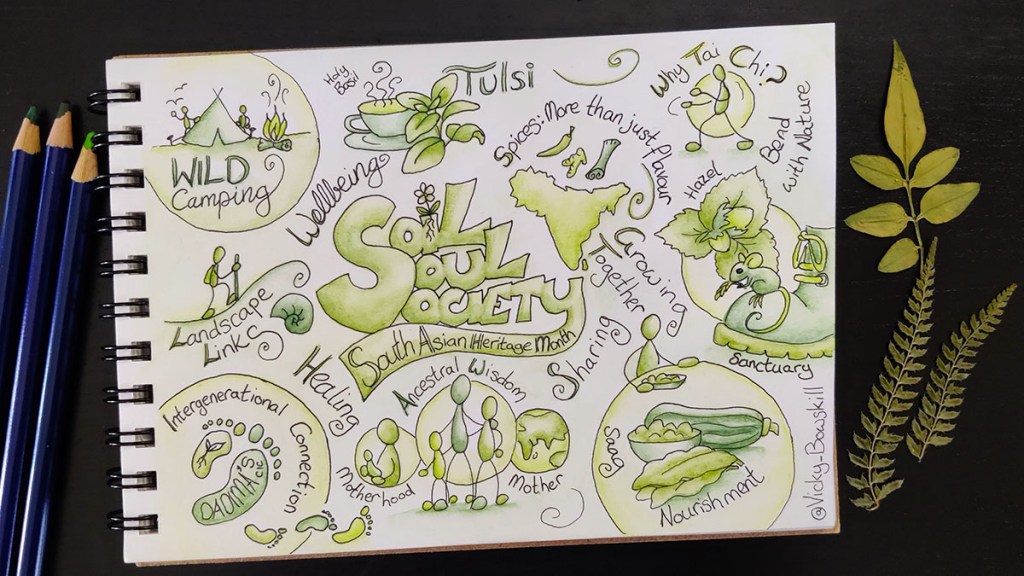 WILD
Camping
Holy
Basil
TULSI
Why Tai Chi?
Bend
with Nature
Spices: More than just flavour
Wellbeing
SOIL
SOUL
SOCIETY
South Asian Heritage Month
Hazel
Growing
Together
Sharing
Sanctuary
Landscape
Links
Healing
Ancestral Wisdom
Intergenerational
Connection
DADIMA'S
CIC
Motherhood
Mother
Saag
Nourishment
@Vicky_Bowskill